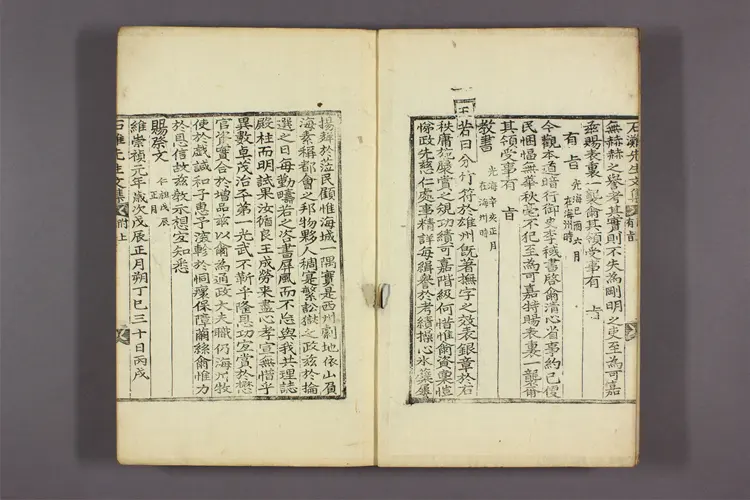 石灘先生文集 有旨
無赫赫之譽考其實則不失為剛明之吏至為可嘉
玆賜表裏一襲爾其領受事有 旨
有旨 光海己酉六月
在海州時
令觀本道暗行御史李書啓爾淸心省事約己優
民悃愊無華秋毫不犯至為可嘉特賜表裏一襲爾
其領受事有 旨
教書 光海辛亥正月
在海州時
王若曰分竹符於雄州旣著撫字之效表銀章於右
秩庸施褒賞之規功績可嘉階級何惜惟爾資稟愷
悌政先慈仁處事精詳每緝譽於考績操心氷蘗
揚於莅民顧惟海城一隅實是西州劇地依山負
海素稱都會之邦物夥人稠寔繁訟獄之政玆於掄
選之日每勤疇若之咨書屛風而不怠與我共理誌
殿柱而明試果汝循良王成勞來盡心孝宣無惜乎
異數卓茂治平第一光武不靳乎隆恩功宜賞於懋
官賚實合於增品玆以爾為通政大夫職仍海州牧
使於戲誠和子惠予深軫於恫瘝保障繭絲爾惟力
於恩信故玆教示想宜知悉
賜祭文 仁祖戊辰
正月
維崇禎元年歲次戊辰正月朔丁巳三十日丙戌
石灘先生文集 附上